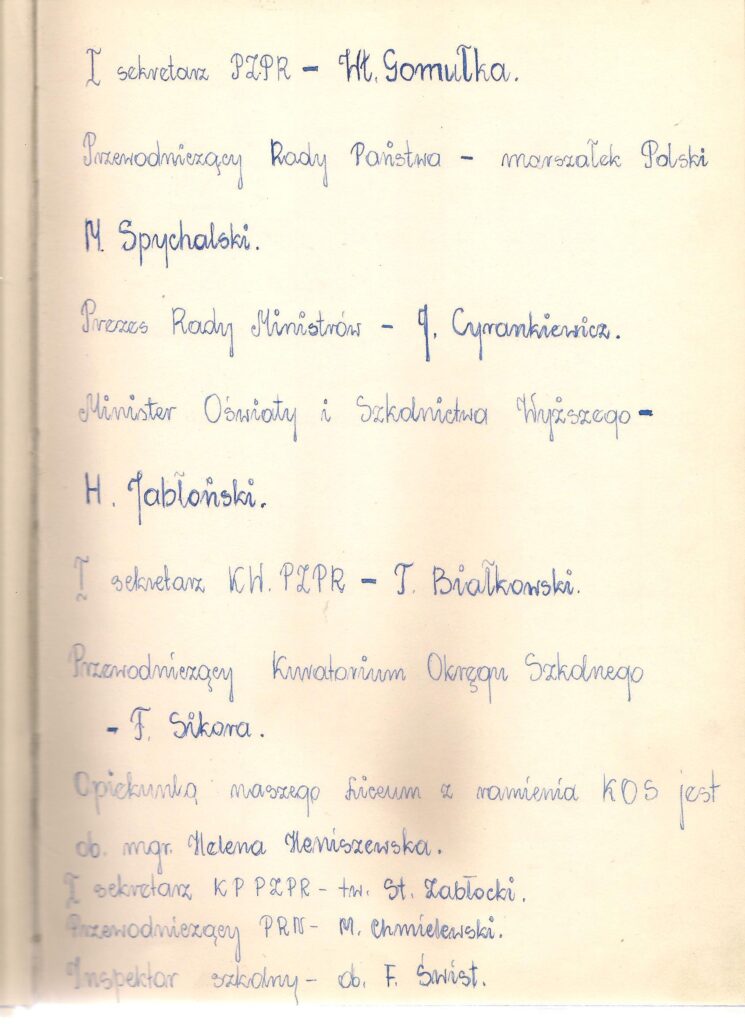 I sekretarz PZPR – Wł. Gomułka.
Przewodniczący Rady Państwa – marszałek Polski
M. Spychalski.
Prezes Rady Ministrów – J. Cyrankiewicz.
Minister Oświaty i Szkolnictwa Wyższego –
H. Jabłoński.
I sekretarz KW. PZPR – T. Białkowski.
Przewodniczący Kuratorium Okręgu Szkolnego
– F. Sikora.
Opiekunką naszego Liceum z ramienia KOS jest
ob. mgr. Helena Heniszewska.
I sekretarz KP PZPR – tw. St. Zabłocki.
Przewodniczący PRN – M. Chmielewski.
Inspektor szkolny – ob. F. Świst.